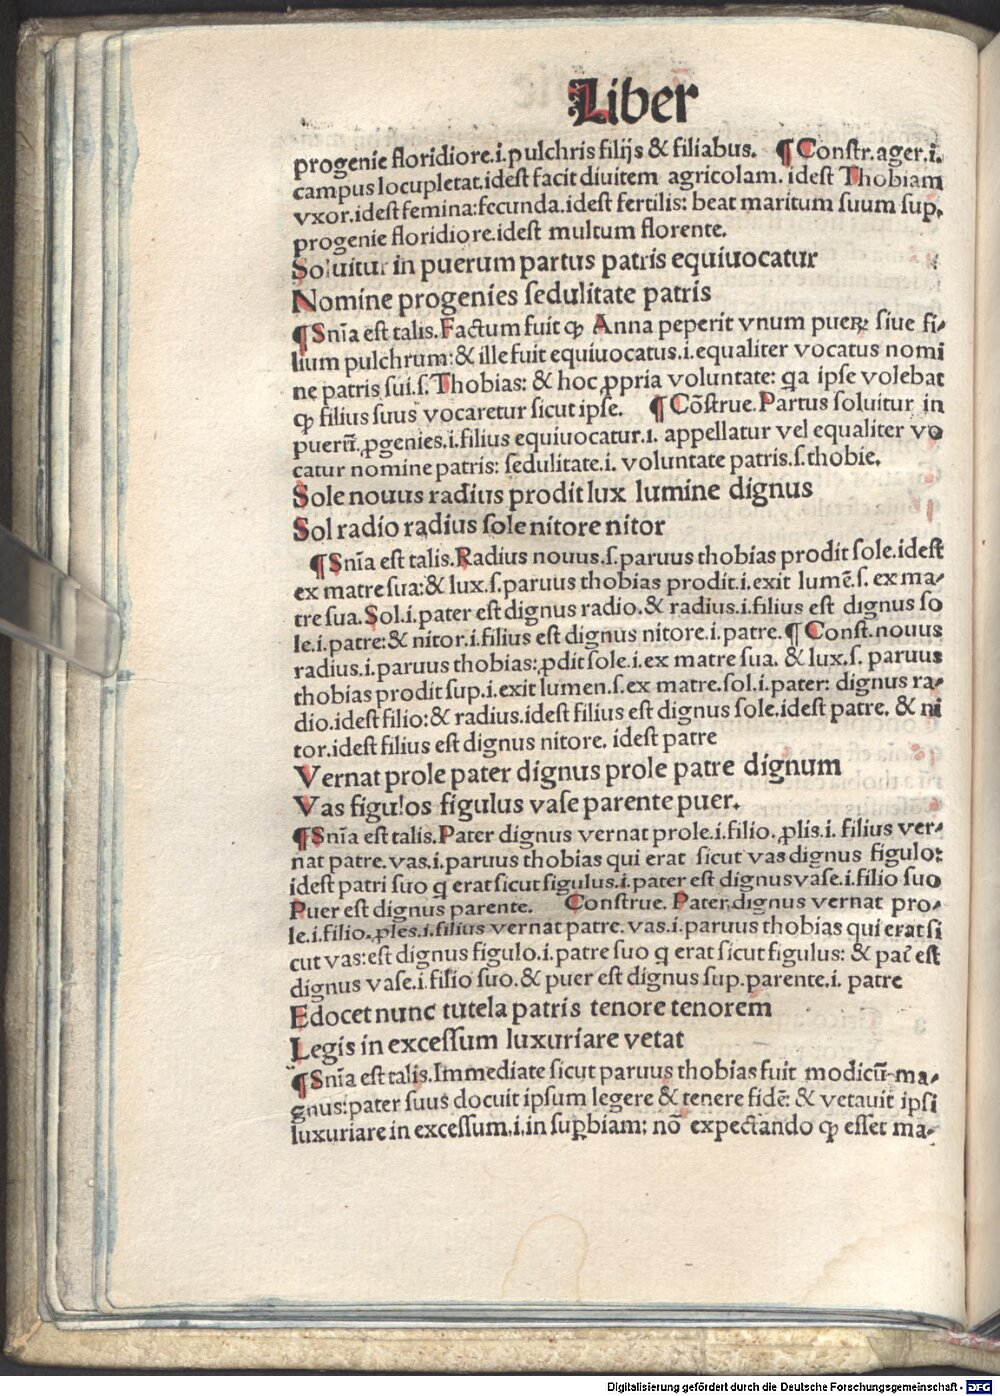 Liber
progenie floridiore.i.pulchris filijs & filiabus. ¶ Constr.ager.i.
campus locupletat.idest facit diuitem agricolam. idest Thobiam
vxor.idest femina:fecunda.idest fertilis: beat maritum suum sup.
progenie floridiore.idest multum florente.
Soluitur in puerum partus patris equiuocatur
Nomine progenies sedulitate patris
¶ Snia est talis.Factum fuit ꝙ Anna peperit vnum pueꝝ siue fi-
lium pulchrum:& ille fuit equiuocatus.i.equaliter vocatus nomi
ne patris sui.s.Thobias: & hoc ꝓpria voluntate: qa ipse volebat
ꝙ filius suus vocaretur sicut ipse. ¶ Cōstrue.Partus soluitur in
puerū.ꝓgenies.i.filius equiuocatur.i. appellatur vel equaliter vo
catur nomine patris: sedulitate.i. voluntate patris.s.thobie.
Sole nouus radius prodit lux lumine dignus
Sol radio radius sole nitore nitor
¶ Snīa est talis.Radius nouus.s.paruus thobias prodit sole.idest
ex matre sua:& lux.s.paruus thobias prodit.i.exit lumē.s. ex ma-
tre sua.Sol.i.pater est dignus radio.& radius.i.filius est dignus so
le.i.patre:& nitor.i.filius est dignus nitore.i.patre.¶ Const.nouus
radius.i.paruus thobias:ꝓdit sole.i.ex matre sua. & lux.s. paruus
thobias prodit sup.i.exit lumen.s.ex matre.sol.i.pater: dignus ra-
dio.idest filio:& radius.idest filius est dignus sole.idest patre. & ni
tor.idest filius est dignus nitore. idest patre
Vernat prole pater dignus prole patre dignum
Vas figulos figulus vase parente puer.
¶ Snīa est talis.Pater dignus vernat prole.i.filio.ꝓlis.i. filius ver-
nat patre.vas.i.paruus thobias qui erat sicut vas dignus figulo:
idest patri suo q erat sicut figulus.i.pater est dignus vase.i.filio suo
Puer est dignus parente. Construe. Pater dignus vernat pro-
le.i.filio.ꝓles.i.filius vernat patre.vas.i.paruus thobias qui erat si
cut vas:est dignus figulo.i.patre suo q erat sicut figulus: & pat̄ est
dignus vase.i.filio suo.& puer est dignus sup.parente.i. patre
Edocet nunc tutela patris tenore tenorem
Legis in excessum luxuriare vetat
¶ Snīa est talis.Immediate sicut paruus thobias fuit modicū-ma-
gnus:pater suus docuit ipsum legere & tenere fidē: & vetauit ipsi
luxuriare in excessum.i.in suꝑbiam: nō expectando ꝙ esset ma-
Digitalisierung gefördert durch die Deutsche Forschungsgemeinschaft - DFG